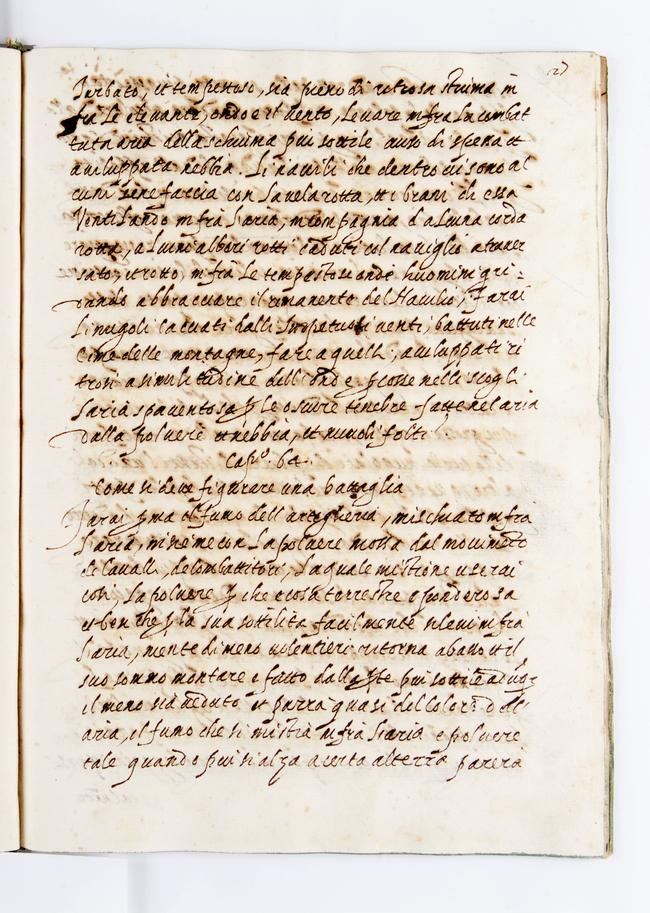 27
Turbato, et tempestoso, sia pieno di retrosa schiuma in
fra le elevante, onde e il vento, levare infra la combat
tuta aria della schiuma piu sottile auso di spesa et
auiluppata nebbia. Li nauili che dentro ui sono al
cuni sene faccia con la uela rotta, et i brani di essa
Ventilando infra l'aria, in compagnia d'alcuna corda
rotta, alcuno alberi rotti caduti col nauiglio atrauer
sato, et rotto, infra le tempestose onde huomini gri =
dando abbracciare il rimanente del Nauilio, Farai
li nugoli cacciati dalli impetuosi uenti, battuti nelle
Cime delle montagne, fare a quelli, auiluppati ri
trosi a similitudine dell'onde ꝑcosse nelli scogli
l'aria spauentosa ꝑ le oscure tenebre fatte nel aria
dalla poluere et nebbia, et nuuoli folti
Capº. 62.
Come si deue figurare una battaglia
Farai ꝑma il fumo dell'artegheria, mischiato infra
l'aria, insieme con la poluere mossa dal mouimeto
de Caualli, de Combattitori, la quale mistione userai
cosi, la poluere ꝑ che e cosa terrestre e ponderosa
et ben che ꝑ la sua sottilità facilmente si leui infra
l'aria, niente di meno uolentieri ritorna a basso et il
suo sommo montare e fatto dalla ꝑte piu sottile adũqꝫ
il meno sia ueduto et parra quasi del colore del
aria, il fumo che si mistia infra l'aria e poluere
tale quando piu s'alza a certa altezza parerà